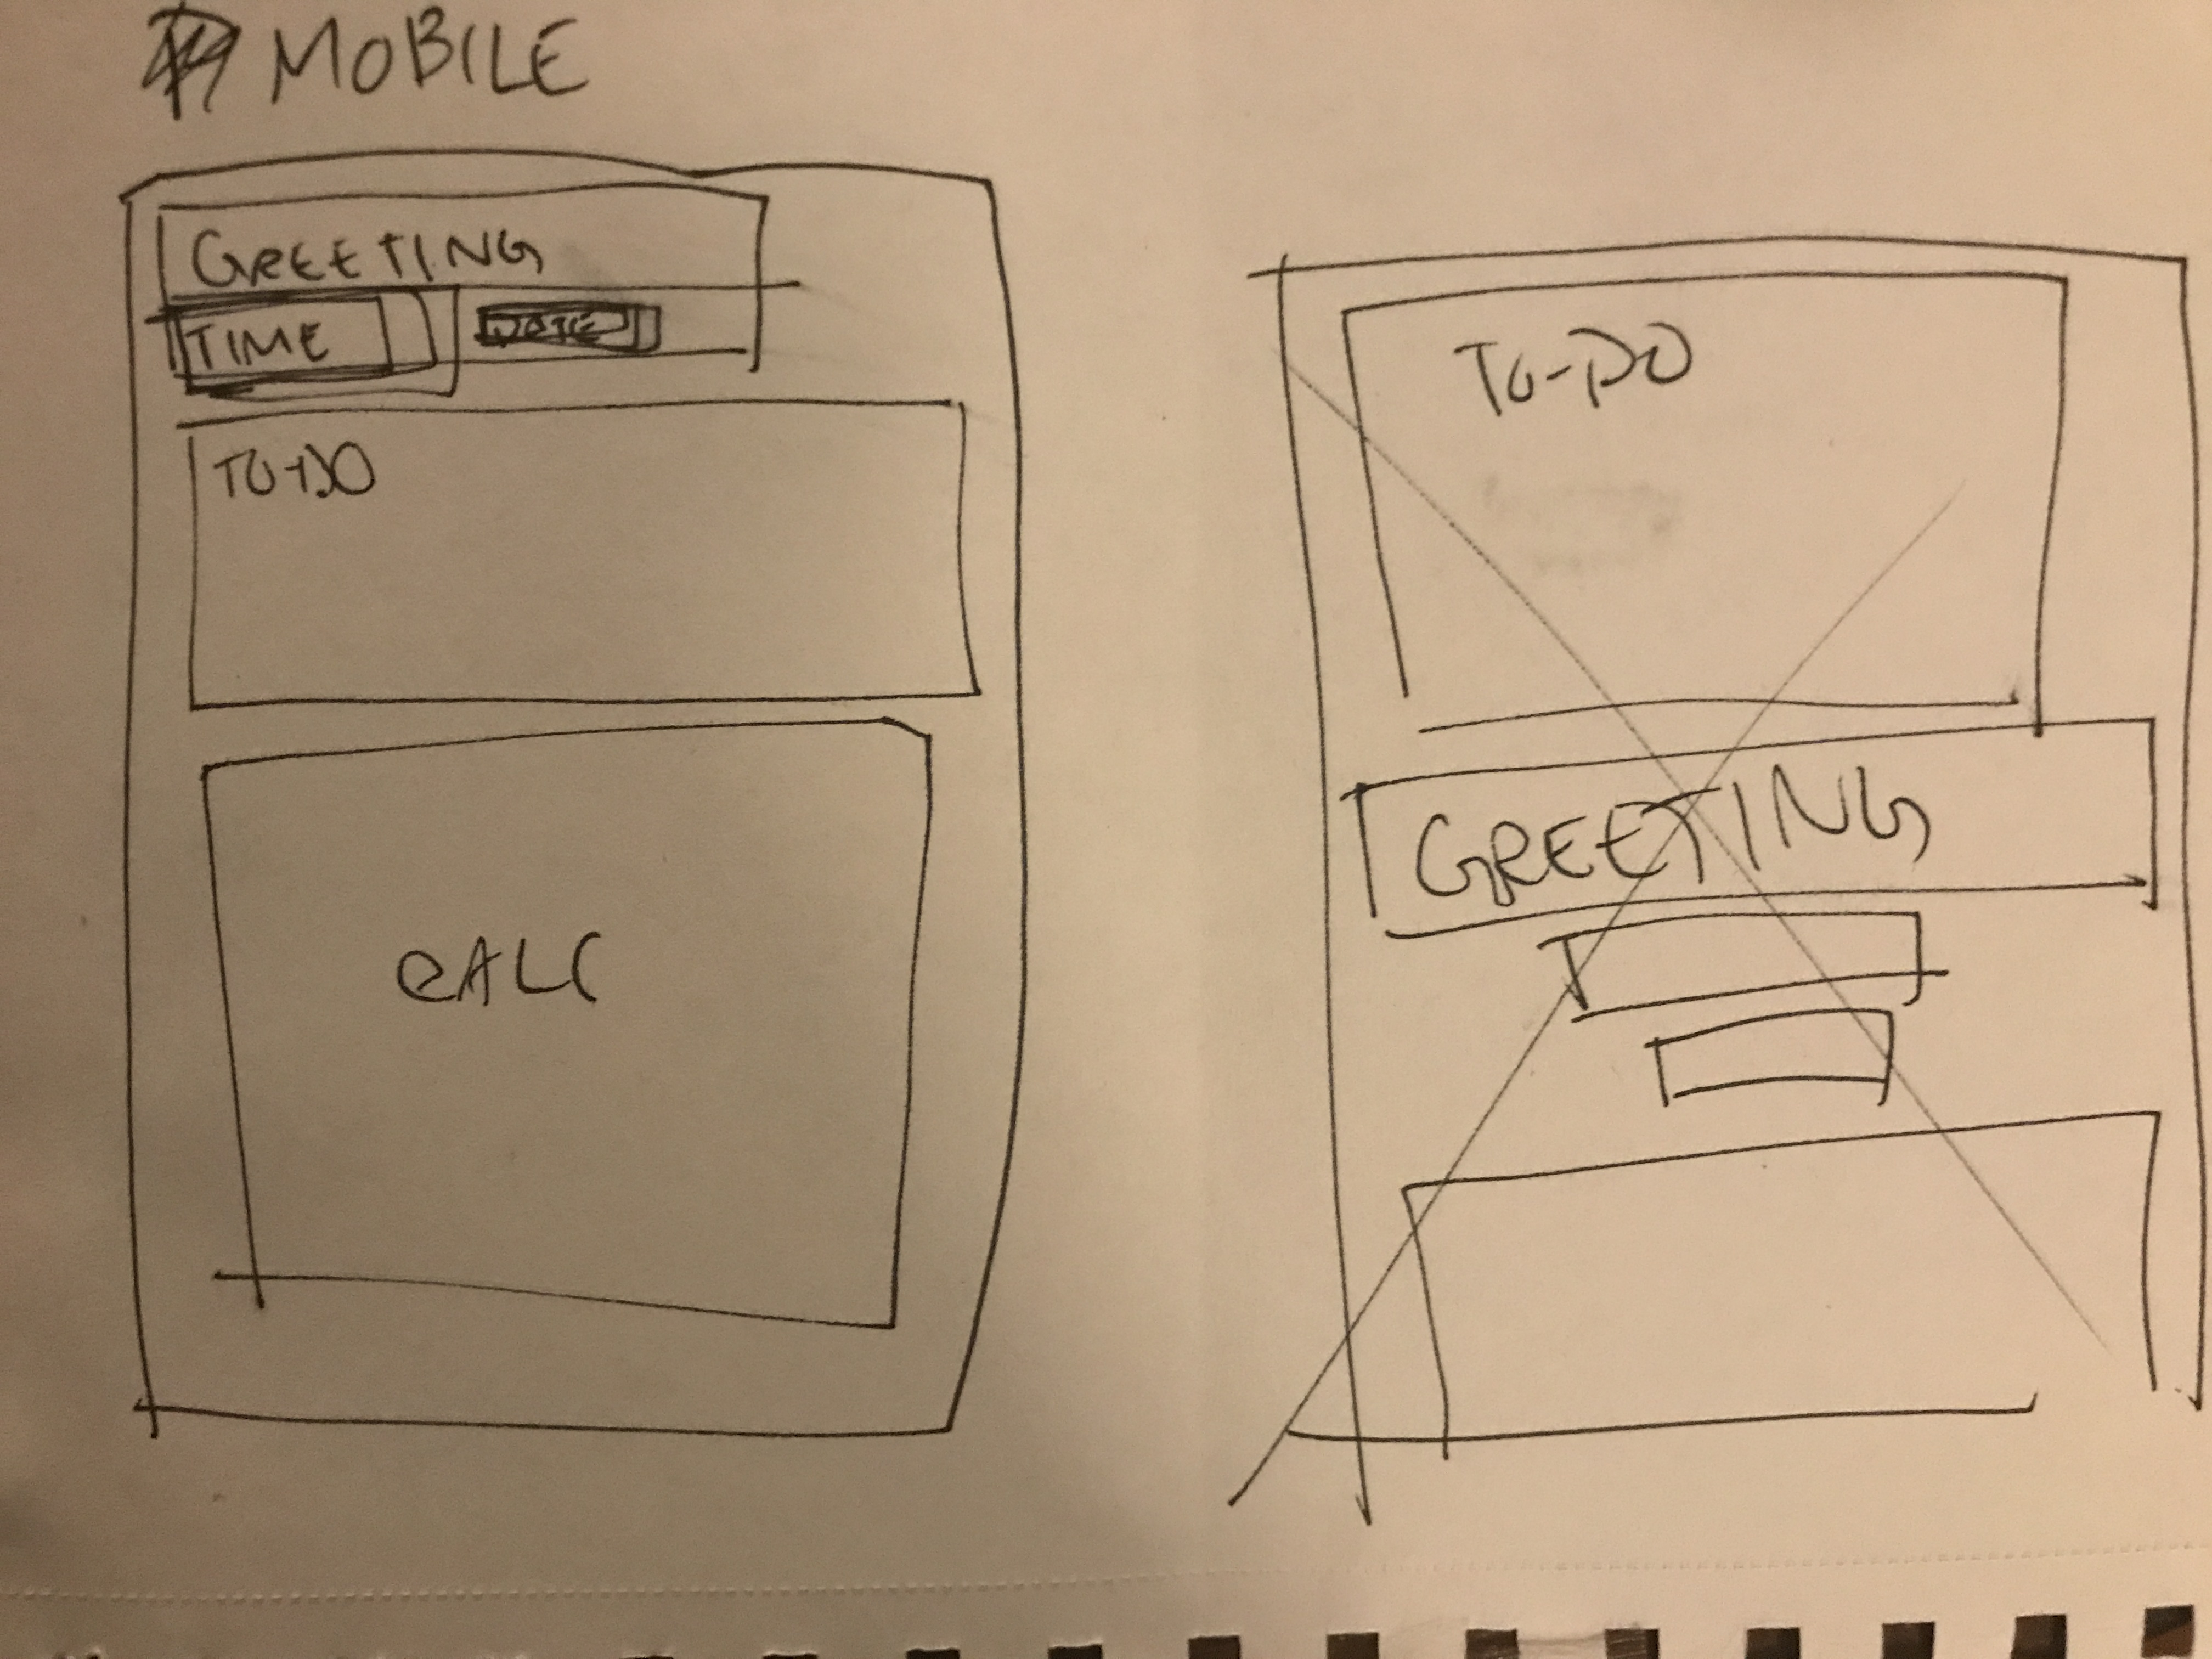 MOBILE
GREETING
TIME DATE
TO-DO
CALC
TO-DO
GREETING